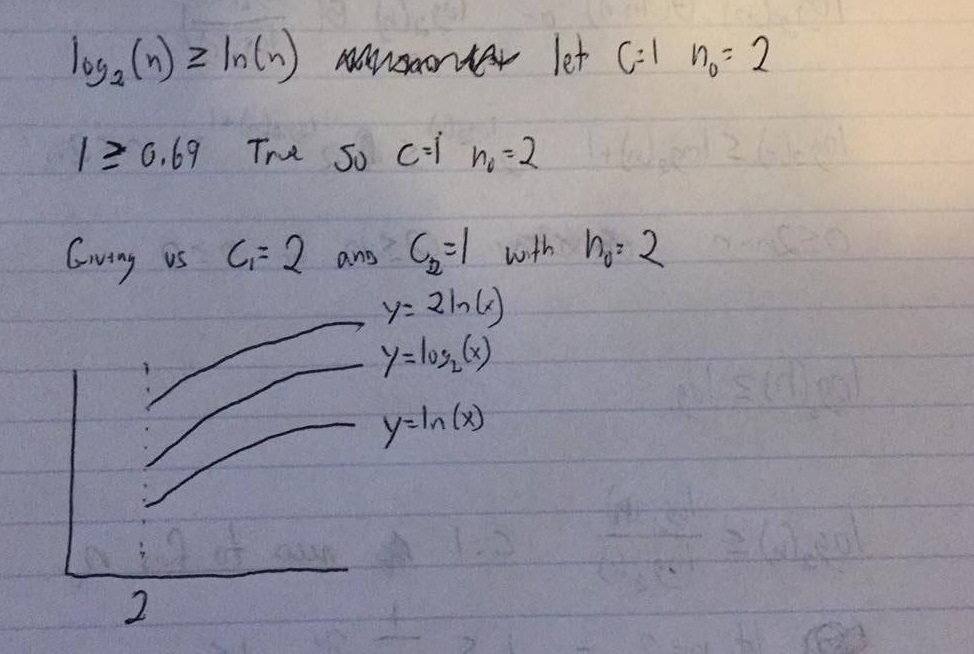 log₂(n) ≥ ln(n) let C=1 n₀=2
1 ≥ 0.69 True so C=1 n₀=2
Giving us C₁=2 and C₂=1 with n₀=2
y=2ln(x)
y=log₂(x)
y=ln(x)
2